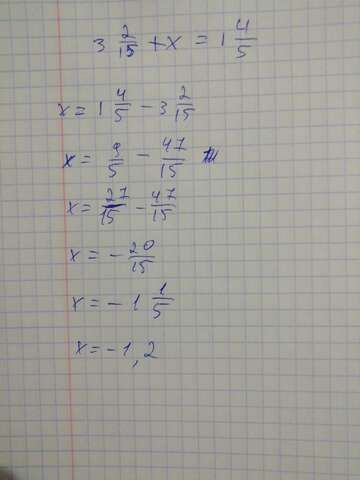 3 2/15 + x = 1 4/5
x = 1 4/5 - 3 2/15
x = 9/5 - 47/15
x = 27/15 - 47/15
x = - 20/15
x = - 1 1/5
x = - 1,2